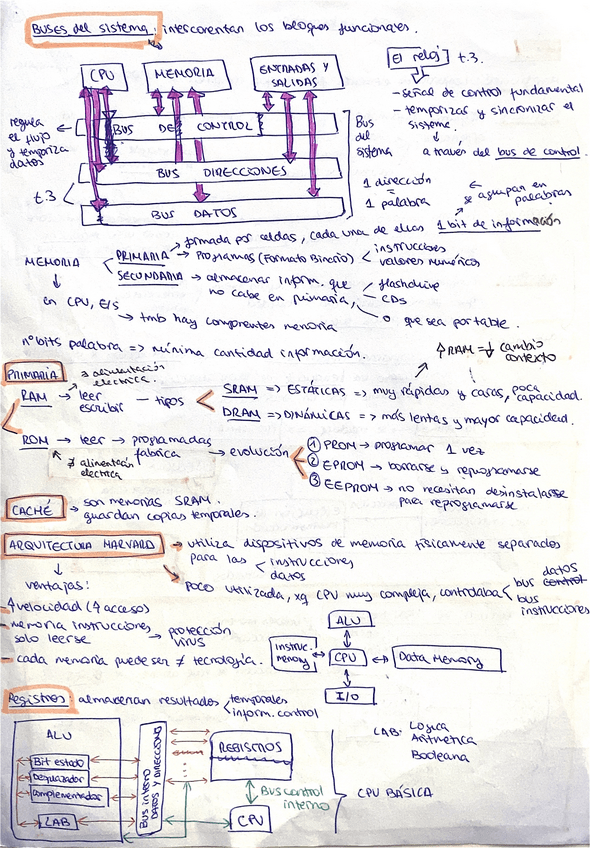 BUSES del sistema: intercorentan los bloques funcionales.
El reloj t.3.
CPU MEMORIA ENTRADAS Y SALIDAS
- señal de control fundamental
- temporizar y sincronizar el sistema.
a través del bus de control.
regula el flujo y temporiza datos
BUS DE CONTROL
BUS DIRECCIONES
BUS DATOS
t.3
Bus del sistema
1 dirección = 1 palabra
se agrupan en palabras
MEMORIA
PRIMARIA → formada por celdas, cada una de ellas 1 bit de información
→ Programas (Formato Binario) < instrucciones
valores numéricos
SECUNDARIA → almacenar inform. que no cabe en primaria,
flashdrive
CDs
o que sea portable.
en CPU, E/S
→ tmb hay componentes memoria
nº bits palabra => mínima cantidad información.
↑RAM = ↓ cambio contexto
PRIMARIA
alimentación electrica.
RAM → leer escribir — tipos
SRAM => ESTÁTICAS => muy rápidas y caras, poca capacidad.
DRAM => DINÁMICAS => más lentas y mayor capacidad.
ROM → leer → programadas fabrica → evolución
≠ alimentación electrica
① PROM → programar 1 vez
② EPROM → borrarse y reprogramarse
③ EEPROM → no necesitan desinstalarse para reprogramarse
CACHÉ → son memorias SRAM.
guardan copias temporales.
ARQUITECTURA HARVARD → utiliza dispositivos de memoria físicamente separados
para las < instrucciones
datos
→ poco utilizada, xq CPU muy compleja, controlaba < bus datos control
bus instrucciones
ventajas:
- ↑ velocidad (↑ acceso)
- memoria instrucciones solo leerse → protección virus
- cada memoria puede ser ≠ tecnología.
ALU
Instruc. memory ↔ CPU ↔ Data Memory
I/O
Registros almacenan resultados < temporales
inform. control
ALU
Bit estado
Desplazador
Complementador
LAB
Bus interno DATOS Y DIRECCIONES
REGISTROS
Bus control interno
CPU
LAB: Lógica
Aritmética
Booleana
CPU BÁSICA